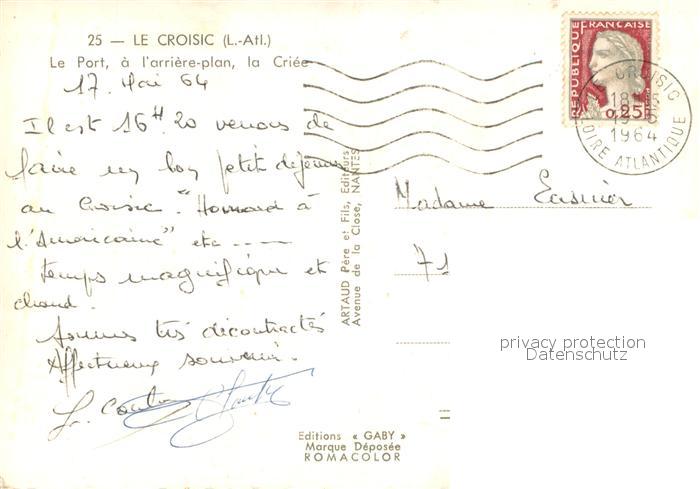 25 — LE CROISIC (L.-Atl.)
Le Port, à l'arrière-plan, la Criée
17 Mai 64
Il est 16H.20 venons de
faire un bon petit déjeuner
au Croisic. "Homard à
l'Américaine" etc ----
temps magnifique et
chaud.
Sommes très décontractés
Affectueux souvenir.
ARTAUD Père et Fils, Editeurs
Avenue de la Close, NANTES
Editions « GABY »
Marque Déposée
ROMACOLOR
REPUBLIQUE FRANÇAISE
0,25F
CROISIC
18H
1964
LOIRE ATLANTIQUE
Madame
71
privacy protection
Datenschutz